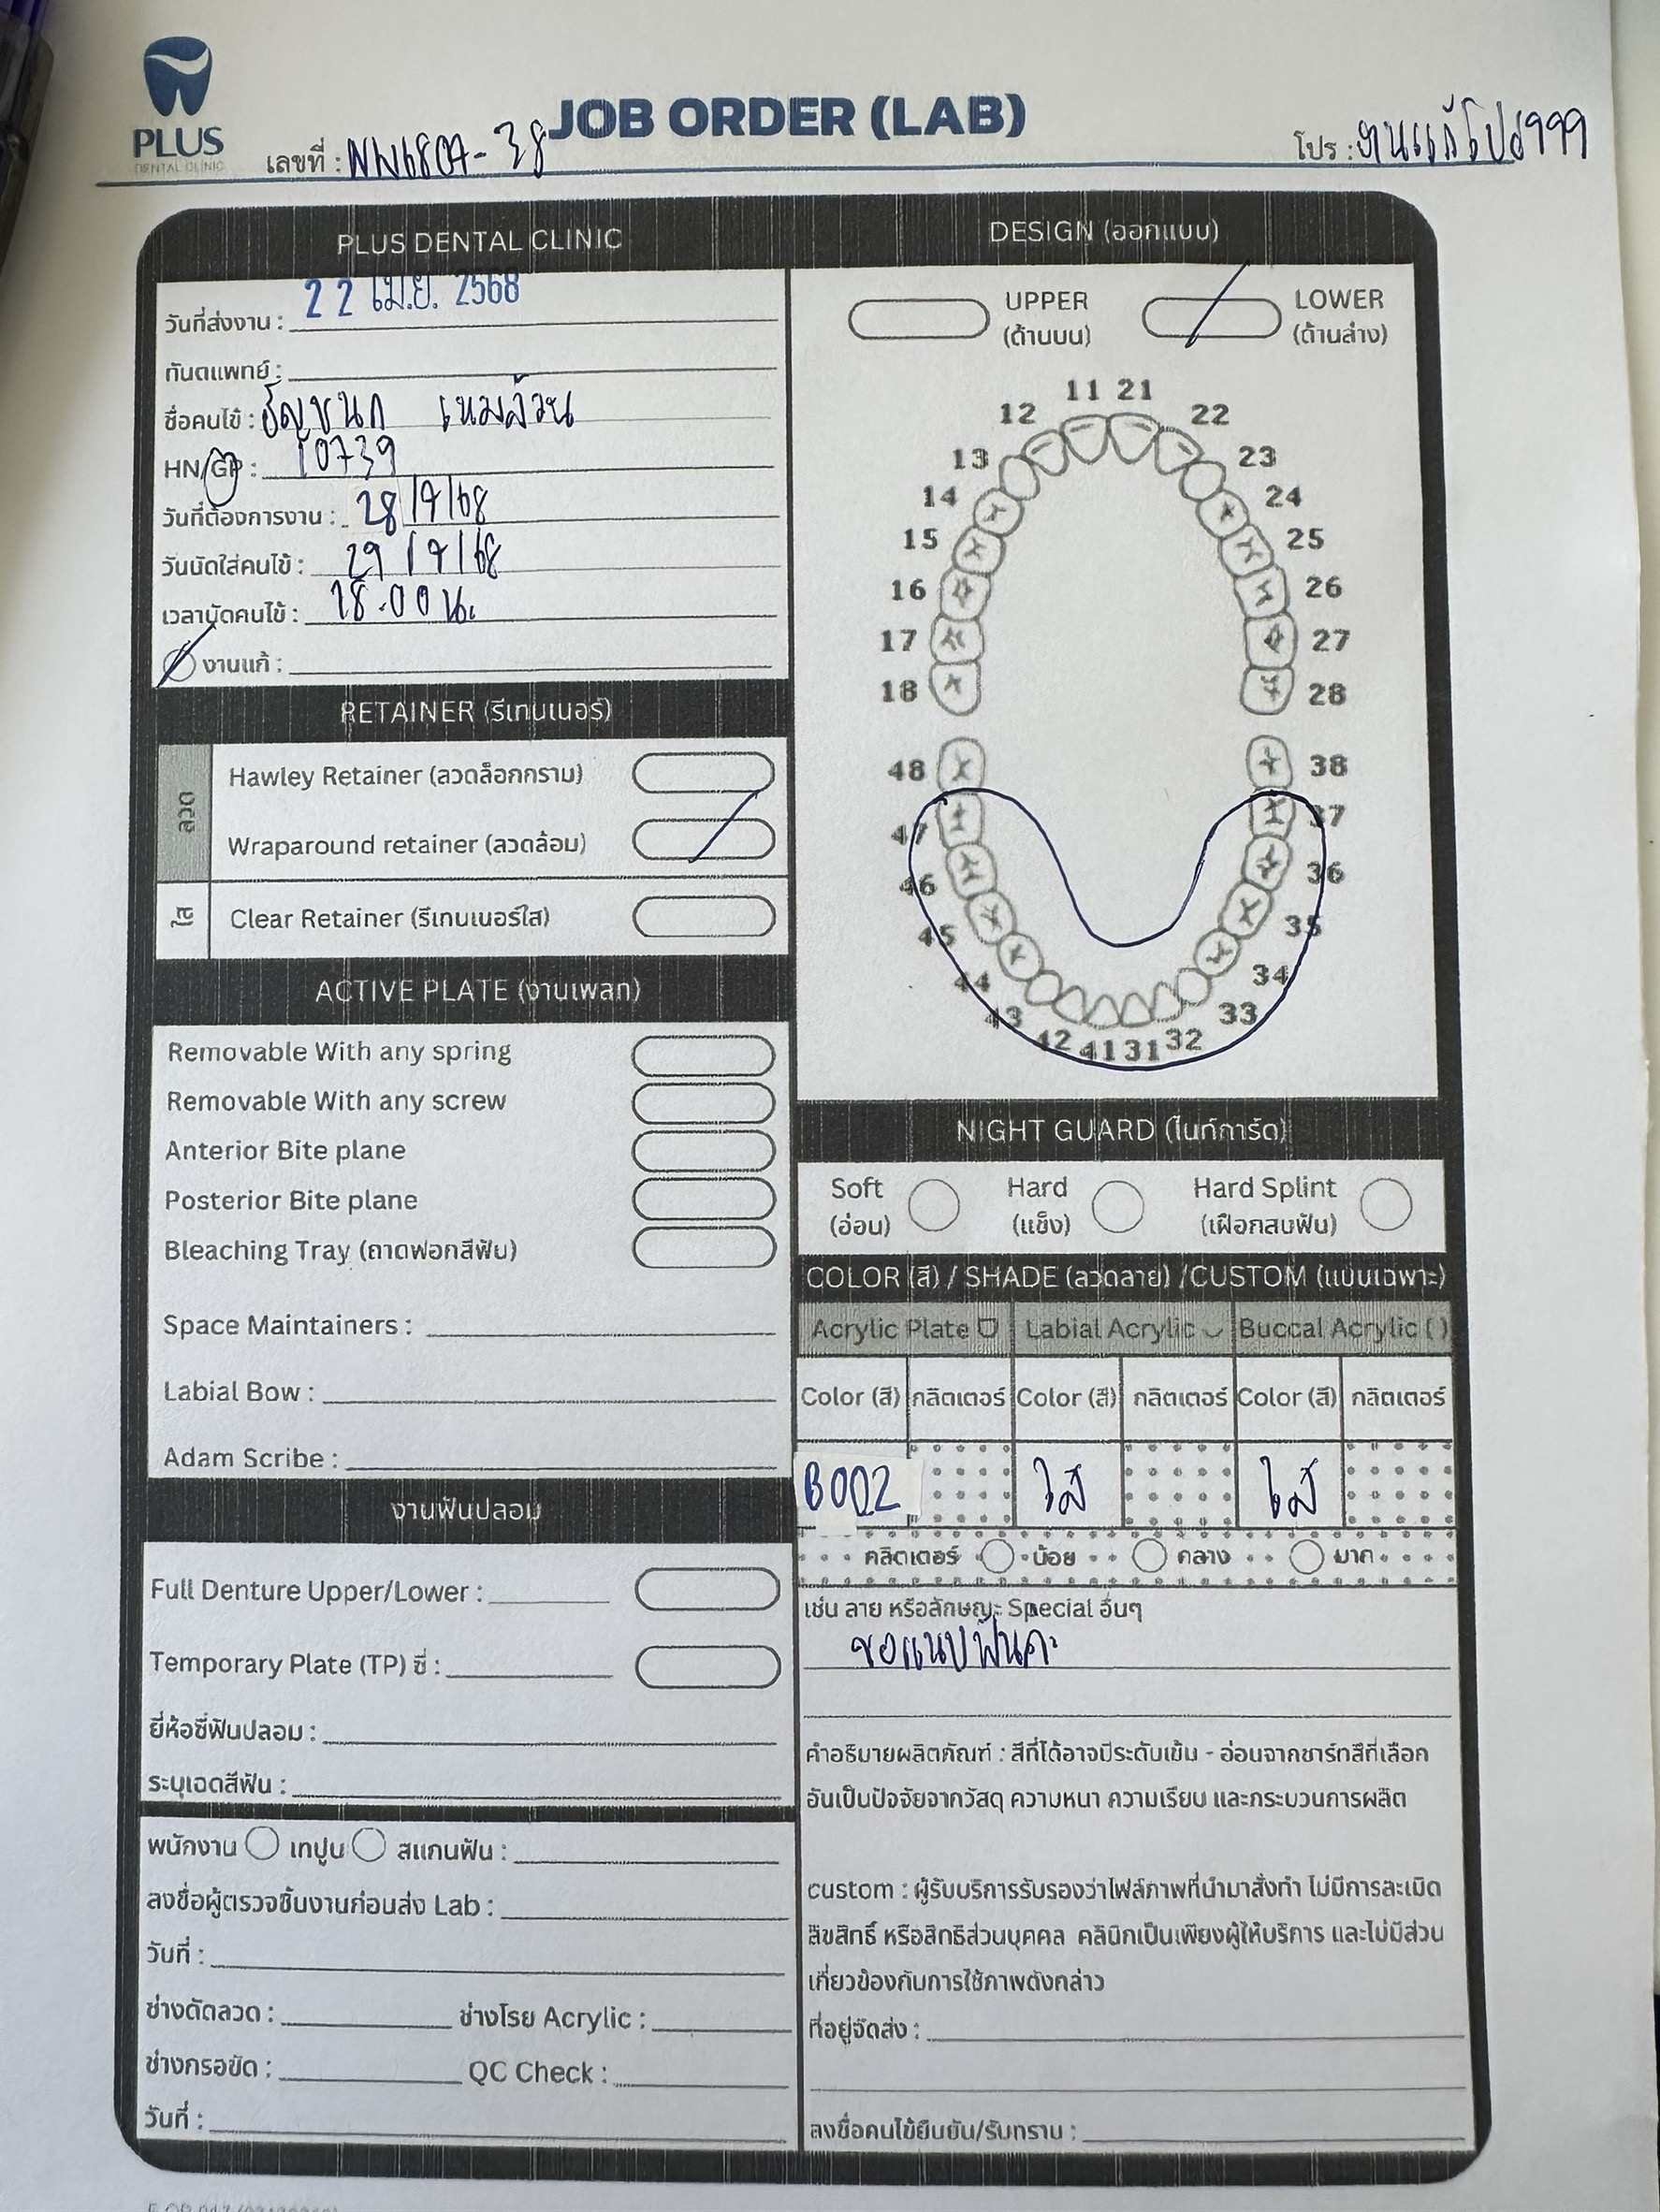 PLUS
DENTAL CLINIC
JOB ORDER (LAB)
เลขที่ : NN6807-38
โปร : งานแก้โปร999
PLUS DENTAL CLINIC
วันที่ส่งงาน : 22 เม.ย. 2568
ทันตแพทย์ :
ชื่อคนไข้ : ธัญชนก เหมล้วน
HN/GP : 10739
วันที่ต้องการงาน : 28/7/68
วันนัดใส่คนไข้ : 29/7/68
เวลานัดคนไข้ : 18.00 น.
งานแก้ :
RETAINER (รีเทนเนอร์)
ลวด
Hawley Retainer (ลวดล็อกกราม)
Wraparound retainer (ลวดล้อม)
ใส
Clear Retainer (รีเทนเนอร์ใส)
ACTIVE PLATE (งานเพลท)
Removable With any spring
Removable With any screw
Anterior Bite plane
Posterior Bite plane
Bleaching Tray (ถาดฟอกสีฟัน)
Space Maintainers :
Labial Bow :
Adam Scribe :
งานฟันปลอม
Full Denture Upper/Lower :
Temporary Plate (TP) ซี่ :
ยี่ห้อซี่ฟันปลอม :
ระบุเฉดสีฟัน :
พนักงาน เทปูน สแกนฟัน :
ลงชื่อผู้ตรวจชิ้นงานก่อนส่ง Lab :
วันที่ :
ช่างดัดลวด : ช่างโรย Acrylic :
ช่างกรอขัด : QC Check :
วันที่ :
DESIGN (ออกแบบ)
UPPER (ด้านบน)
LOWER (ด้านล่าง)
11 21
12 22
13 23
14 24
15 25
16 26
17 27
18 28
48 38
47 37
46 36
45 35
44 34
43 33
42 41 31 32
NIGHT GUARD (ไนท์การ์ด)
Soft (อ่อน)
Hard (แข็ง)
Hard Splint (เฝือกสบฟัน)
COLOR (สี) / SHADE (ลวดลาย) /CUSTOM (แบบเฉพาะ)
Acrylic Plate Labial Acrylic Buccal Acrylic ( )
Color (สี) กลิตเตอร์ Color (สี) กลิตเตอร์ Color (สี) กลิตเตอร์
B002 ใส ใส
คลิตเตอร์ น้อย กลาง มาก
เช่น ลาย หรือลักษณะ Special อื่นๆ
ขอแนบฟันคะ
คำอธิบายผลิตภัณฑ์ : สีที่ได้อาจมีระดับเข้ม - อ่อนจากชาร์ทสีที่เลือก
อันเป็นปัจจัยจากวัสดุ ความหนา ความเรียบ และกระบวนการผลิต
custom : ผู้รับบริการรับรองว่าไฟล์ภาพที่นำมาสั่งทำ ไม่มีการละเมิด
ลิขสิทธิ์ หรือสิทธิส่วนบุคคล คลินิกเป็นเพียงผู้ให้บริการ และไม่มีส่วน
เกี่ยวข้องกับการใช้ภาพดังกล่าว
ที่อยู่จัดส่ง :
ลงชื่อคนไข้ยืนยัน/รับทราบ :